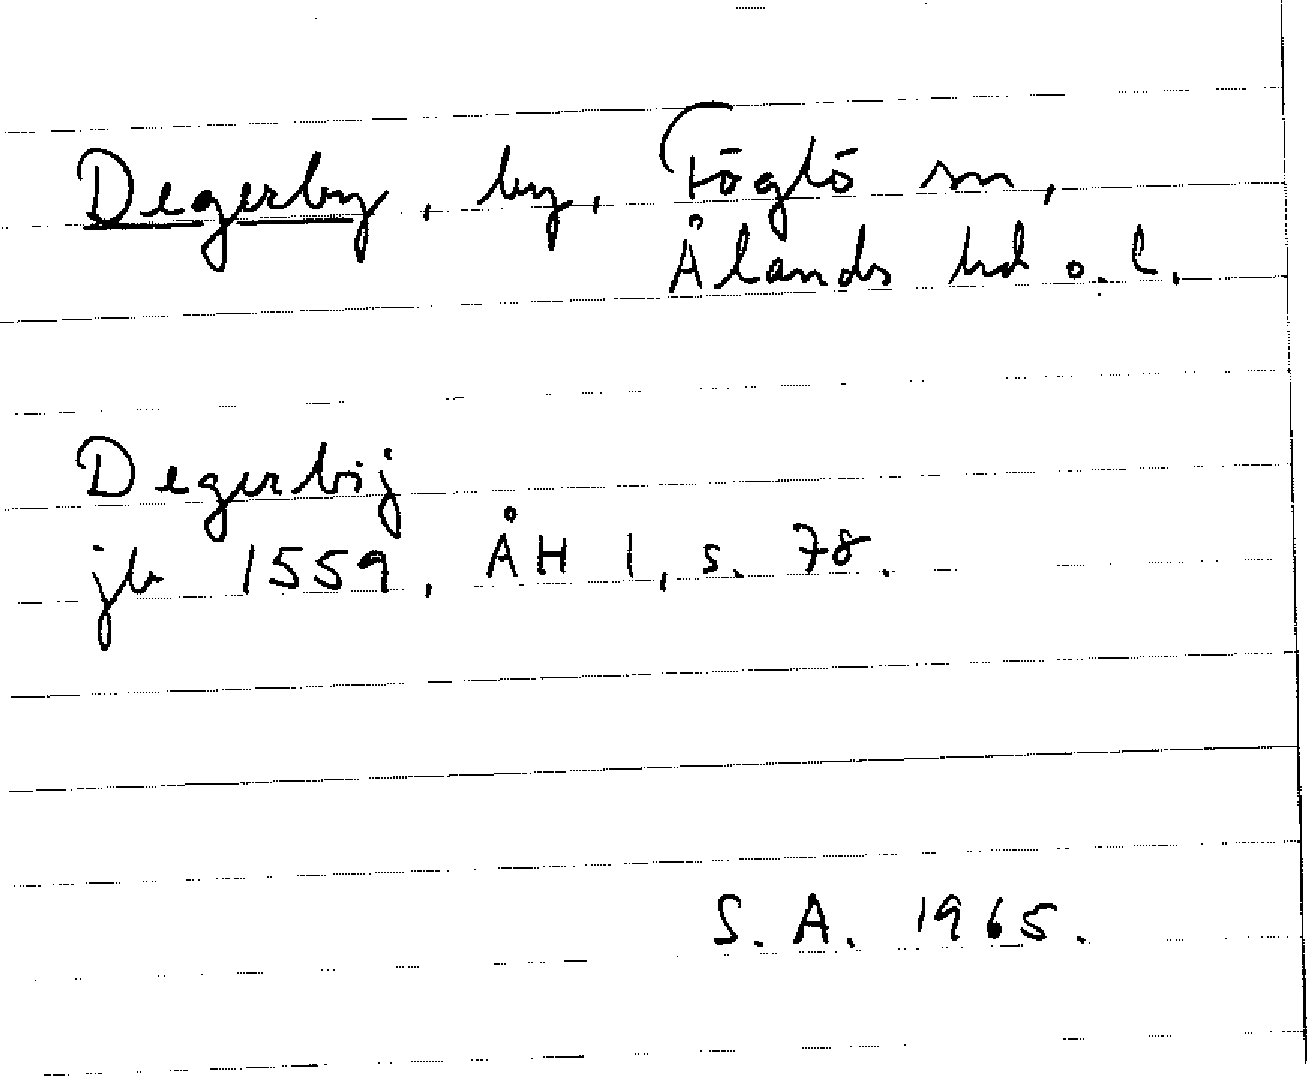 Degerby, by, Föglö sn,
Ålands hd o. l.
Degerbij
jb 1559, ÅH 1, s. 78.
S. A. 1965.